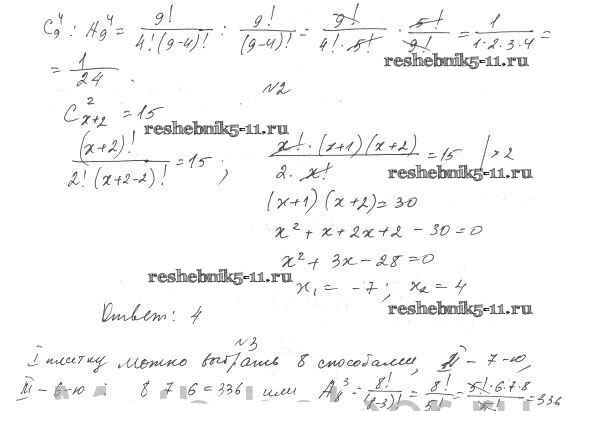 C₉⁴ : A₉⁴ = 9!/4!(9-4)! : 9!/(9-4)! = 9!/4!·5! · 5!/9! = 1/1·2·3·4 =
reshebnik5-11.ru
= 1/24.
№2
C²ₓ₊₂ = 15
reshebnik5-11.ru
(x+2)!/2!(x+2-2)! = 15; x!·(x+1)(x+2)/2·x! = 15 |×2
reshebnik5-11.ru
(x+1)(x+2)=30
x² + x + 2x + 2 - 30 = 0
x² + 3x - 28 = 0
reshebnik5-11.ru
x₁ = -7; x₂ = 4
Ответ: 4
reshebnik5-11.ru
№3
I плитку можно выбрать 8 способами, II - 7-ю,
III - 6-ю : 8 7 6 = 336 или A₈³ = 8!/(8-3)! = 8!/5! = 5!·6·7·8/5! = 336